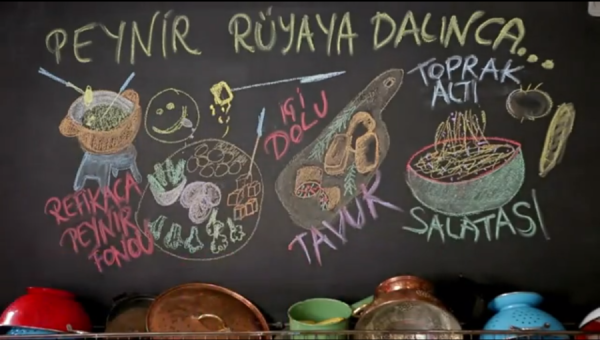 PEYNİR RÜYAYA DALINCA...
REFİKACA
PEYNİR
FONDÜ
İÇİ
DOLU
TAVUK
TOPRAK
ALTI
SALATASI